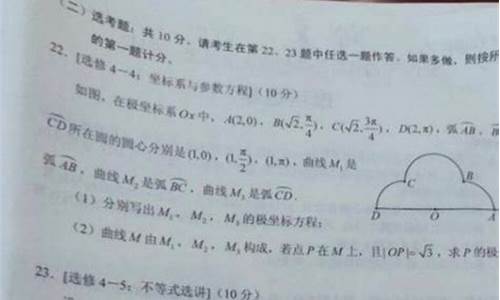 (二)选考题:共10分。请考生在第22、23题中任选一题作答。如果多做,则按所
的第一题计分。
22.[选修4—4:坐标系与参数方程](10分)
如图,在极坐标系Ox中,A(2,0),B(√2,π/4),C(√2,3π/4),D(2,π),弧AB,B
CD所在圆的圆心分别是(1,0),(1,π/2),(1,π),曲线M₁是
弧AB,曲线M₂是弧BC,曲线M₃是弧CD.
C
B
D
O
A
(1)分别写出M₁,M₂,M₃的极坐标方程;
(2)曲线M由M₁,M₂,M₃构成,若点P在M上,且|OP|=√3,求P的极
23.[选修4—5:不等式选讲](10分)